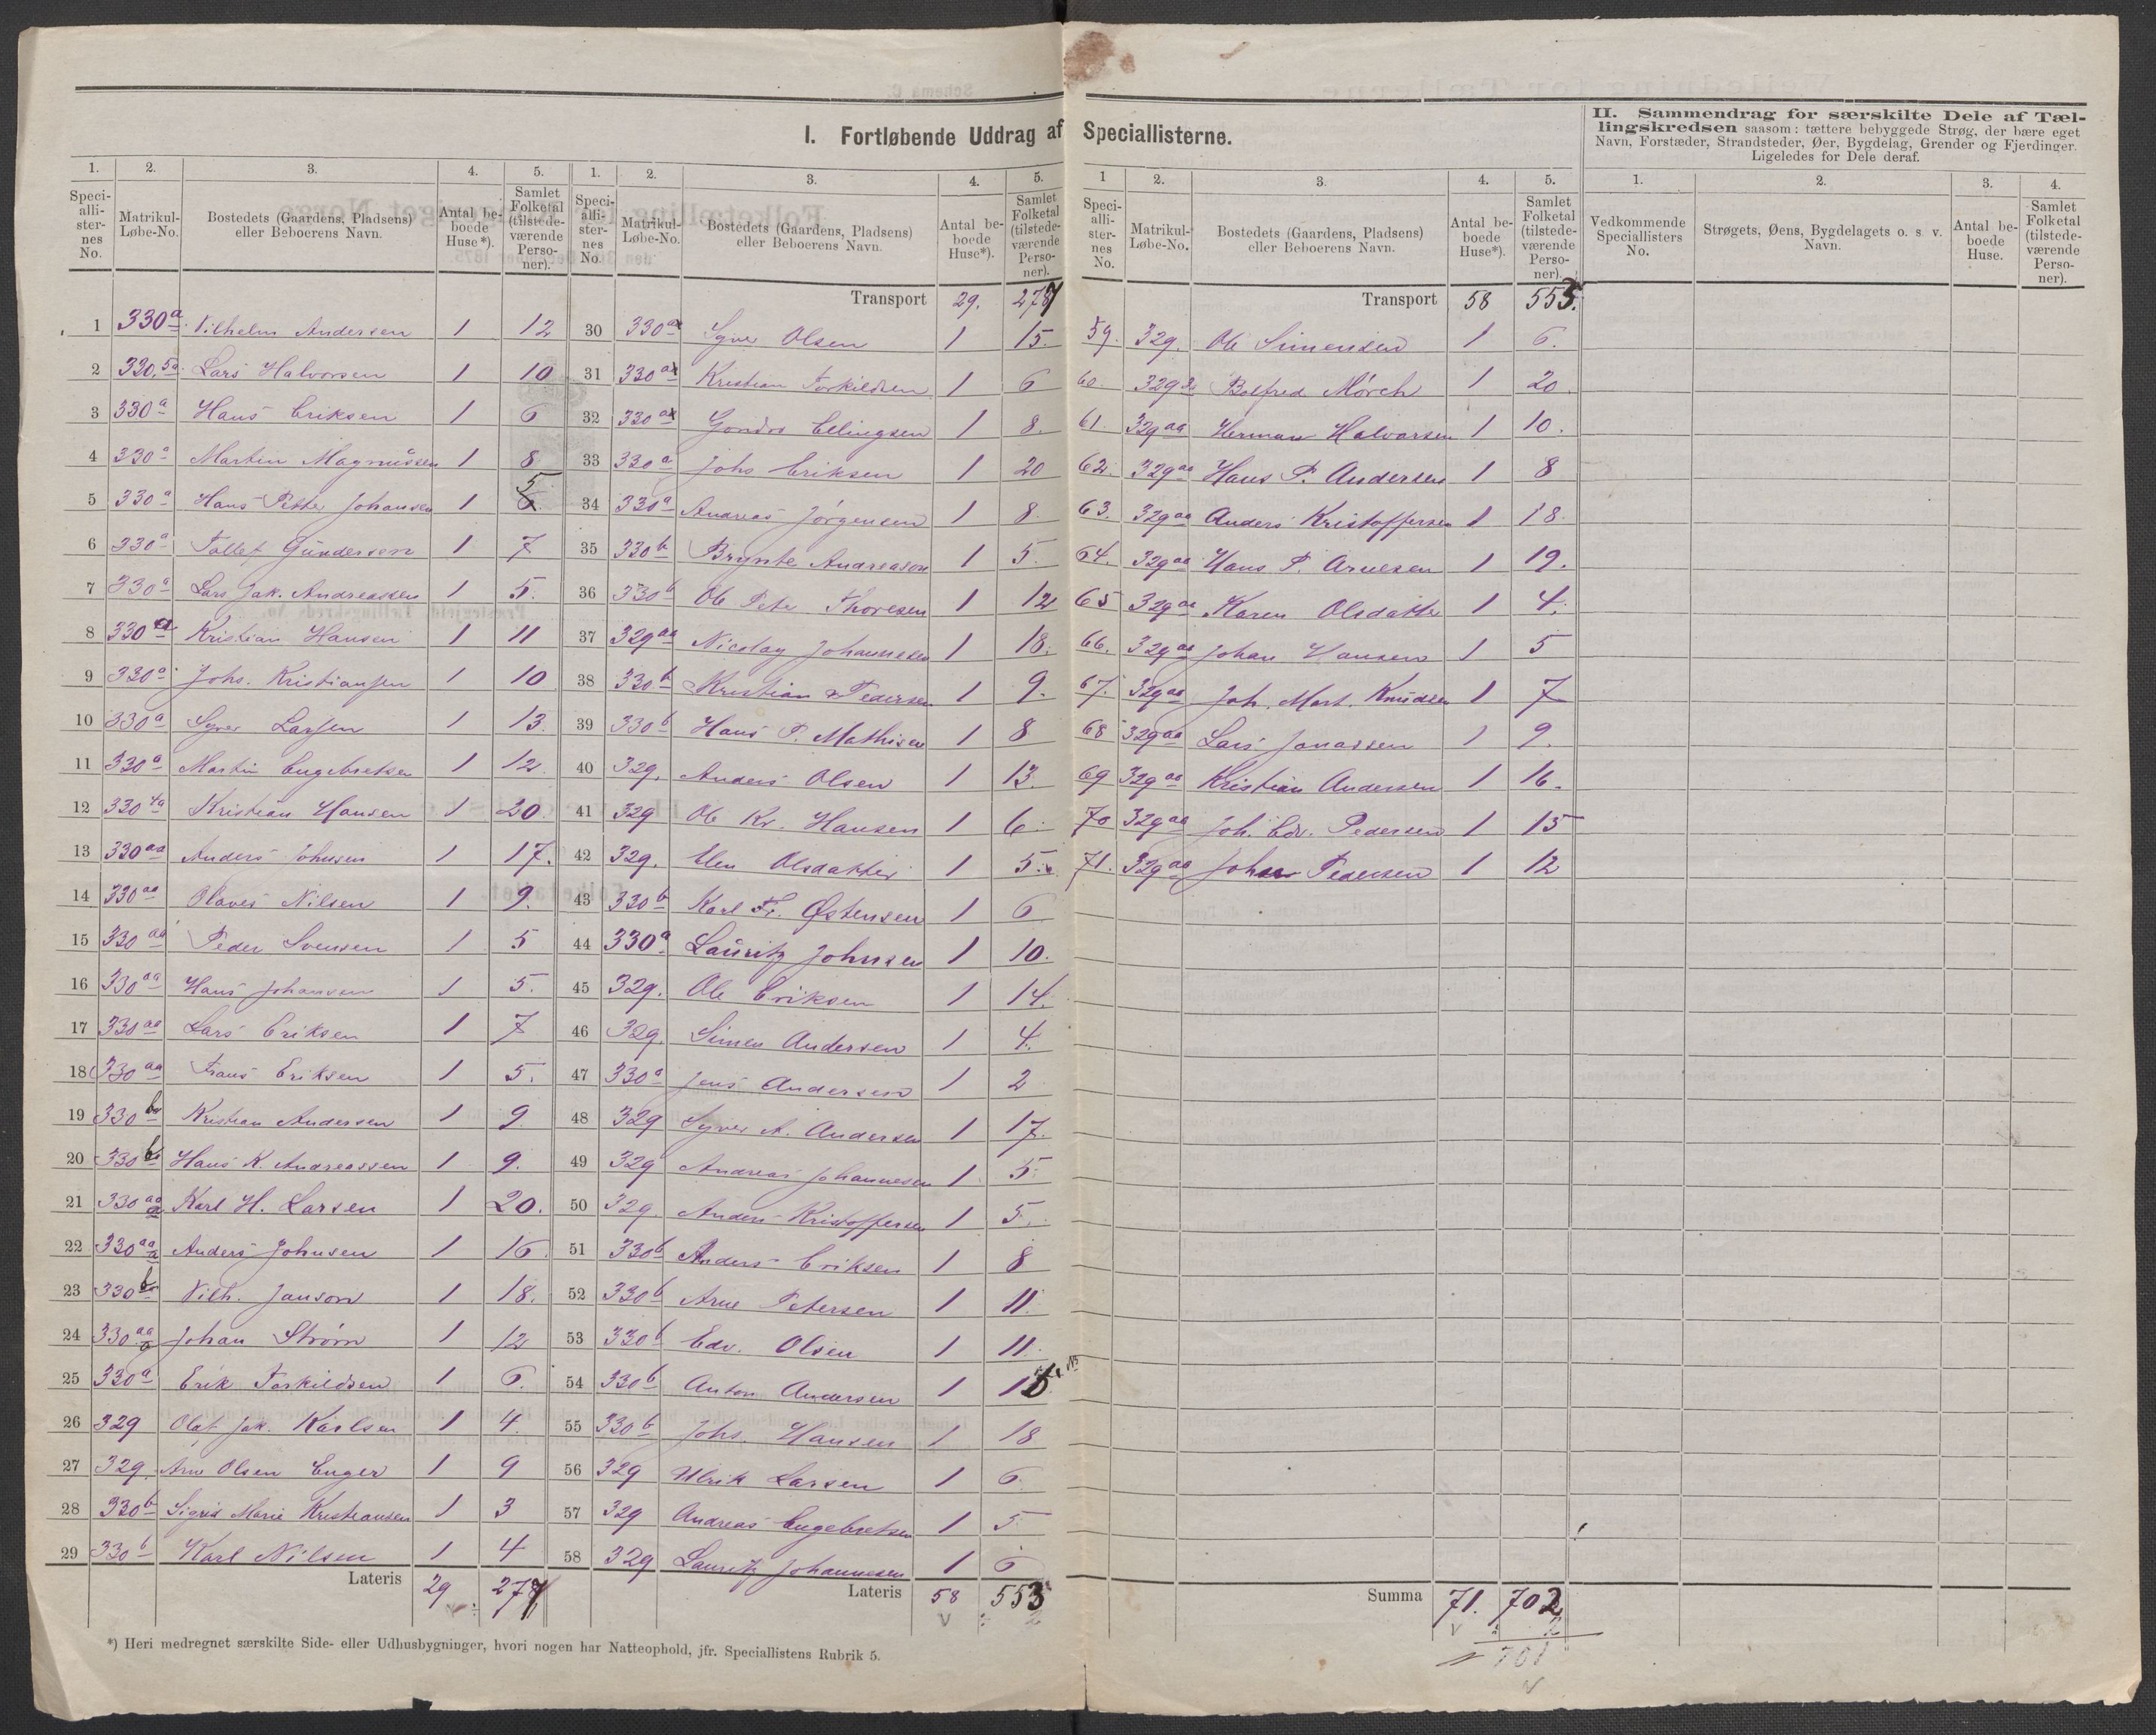 I. Fortløbende Uddrag af Speciallisterne.
1. 2. 3. 4. 5.
Specialli-sternes No. Matrikul-Løbe-No. Bostedets (Gaardens, Pladsens) eller Beboerens Navn. Antal beboede Huse*). Samlet Folketal (tilstedeværende Personer).
1 330a Vilhelm Andersen 1 12
2 330.5a Lars Halvorsen 1 10
3 330a Hans Eriksen 1 6
4 330a Martin Magnussen 1 8
5 330a Hans Petter Johansen 1 5
6 330a Tollef Gundersen 1 7
7 330a Lars Jak. Andreassen 1 5.
8 330a Kristian Hansen 1 11
9 330a Johs. Kristiansen 1 10
10 330a Syver Larsen 1 13.
11 330a Martin Engebretsen 1 12.
12 330 4a Kristian Hansen 1 20.
13 330aa Anders Johnsen 1 17.
14 330aa Olaves Nilsen 1 9.
15 330aa Peder Svensen 1 5
16 330aa Hans Johansen 1 5.
17 330aa Lars Eriksen 1 7
18 330aa Frans Eriksen 1 5.
19 330b Kristian Andersen 1 9.
20 330b Hans K. Andreassen 1 9.
21 330aa Karl H. Larsen 1 20.
22 330aa Anders Johnsen 1 16
23 330b Vilh. Janson 1 18.
24 330aa Johan Strøm 1 12
25 330a Erik Torkildsen 1 6.
26 329 Olaf Jak. Karlsen 1 4.
27 329. Arne Olsen Enger 1 9
28 330b Sigrid Marie Kristiansen 1 3
29 330b Karl Nilsen 1 4
Lateris 29 277
1. 2. 3. 4. 5.
Specialli-sternes No. Matrikul-Løbe-No. Bostedets (Gaardens, Pladsens) eller Beboerens Navn. Antal beboede Huse*). Samlet Folketal (tilstedeværende Personer).
Transport 29. 277
30 330a Syver Olsen 1 15.
31 330a Kristian Torkildsen 1 6
32 330a Ellingsen 1 8.
33 330a Johs Eriksen 1 20
34 330a Andreas Jörgensen 1 8.
35 330b Brynte Andreason 1 5.
36 330b Ole Peter Thoresen 1 12
37 329aa Nicolay Johannesen 1 18.
38 330b Kristian Pedersen 1 9.
39 330b Hans P. Mathisen 1 8
40 329. Anders Olsen 1 13.
41 329 Ole Kr. Hansen 1 6.
42 329. Elen Olsdatter 1 5.
43 330b Karl Fr. Østensen 1 6
44 330a Lauritz Johnsen 1 10.
45 329. Ole Eriksen 1 14.
46 329. Simen Andersen 1 4.
47 330a Jens Andersen 1 2
48 329 Syver A. Andersen 1 17.
49 329 Andreas Johannesen 1 5.
50 329. Anders Kristoffersen 1 5.
51 330b Anders Eriksen 1 8
52 330b Arne Petersen 1 11.
53 330b Edv. Olsen 1 11.
54 330b Anton Andersen 1
55 330b Johs. Hansen 1 18
56 329 Ulrik Larsen 1 6.
57 329 Andreas Engebretsen 1 5
58 329 Lauritz Johannesen 1 6
Lateris 58 553
*) Heri medregnet særskilte Side- eller Udhusbygninger, hvori nogen har Natteophold, jfr. Speciallistens Rubrik 5.
1 2. 3. 4. 5.
Specialli-sternes No. Matrikul-Løbe-No. Bostedets (Gaardens, Pladsens) eller Beboerens Navn. Antal beboede Huse*). Samlet Folketal (tilstedeværende Personer).
Transport 58 553.
59. 329. Ole Simensen 1 6.
60. 329 Bolfred Mörch 1 20.
61 329aa Herman Halvorsen 1 10.
62. 329aa Hans P. Andersen 1 8
63. 329aa Anders Kristoffersen 1 18.
64. 329aa Hans P. Arnesen 1 19.
65 329aa Karen Olsdatter 1 4.
66. 329aa Johan Hansen 1 5
67. 329aa Joh. Mart. Knudsen 1 7
68 329aa Lars Jonassen 1 9.
69 329aa Kristian Andersen 1 16.
70 329aa Joh. Edv. Pedersen 1 15
71. 329aa Johan Pedersen 1 12
Summa 71. 702
701
II. Sammendrag for særskilte Dele af Tællingskredsen saasom: tættere bebyggede Strøg, der bære eget Navn, Forstæder, Strandsteder, Øer, Bygdelag, Grender og Fjerdinger. Ligeledes for Dele deraf.
1. 2. 3. 4.
Vedkommende Speciallisters No. Strøgets, Øens, Bygdelagets o. s. v. Navn. Antal beboede Huse. Samlet Folketal (tilstedeværende Personer).